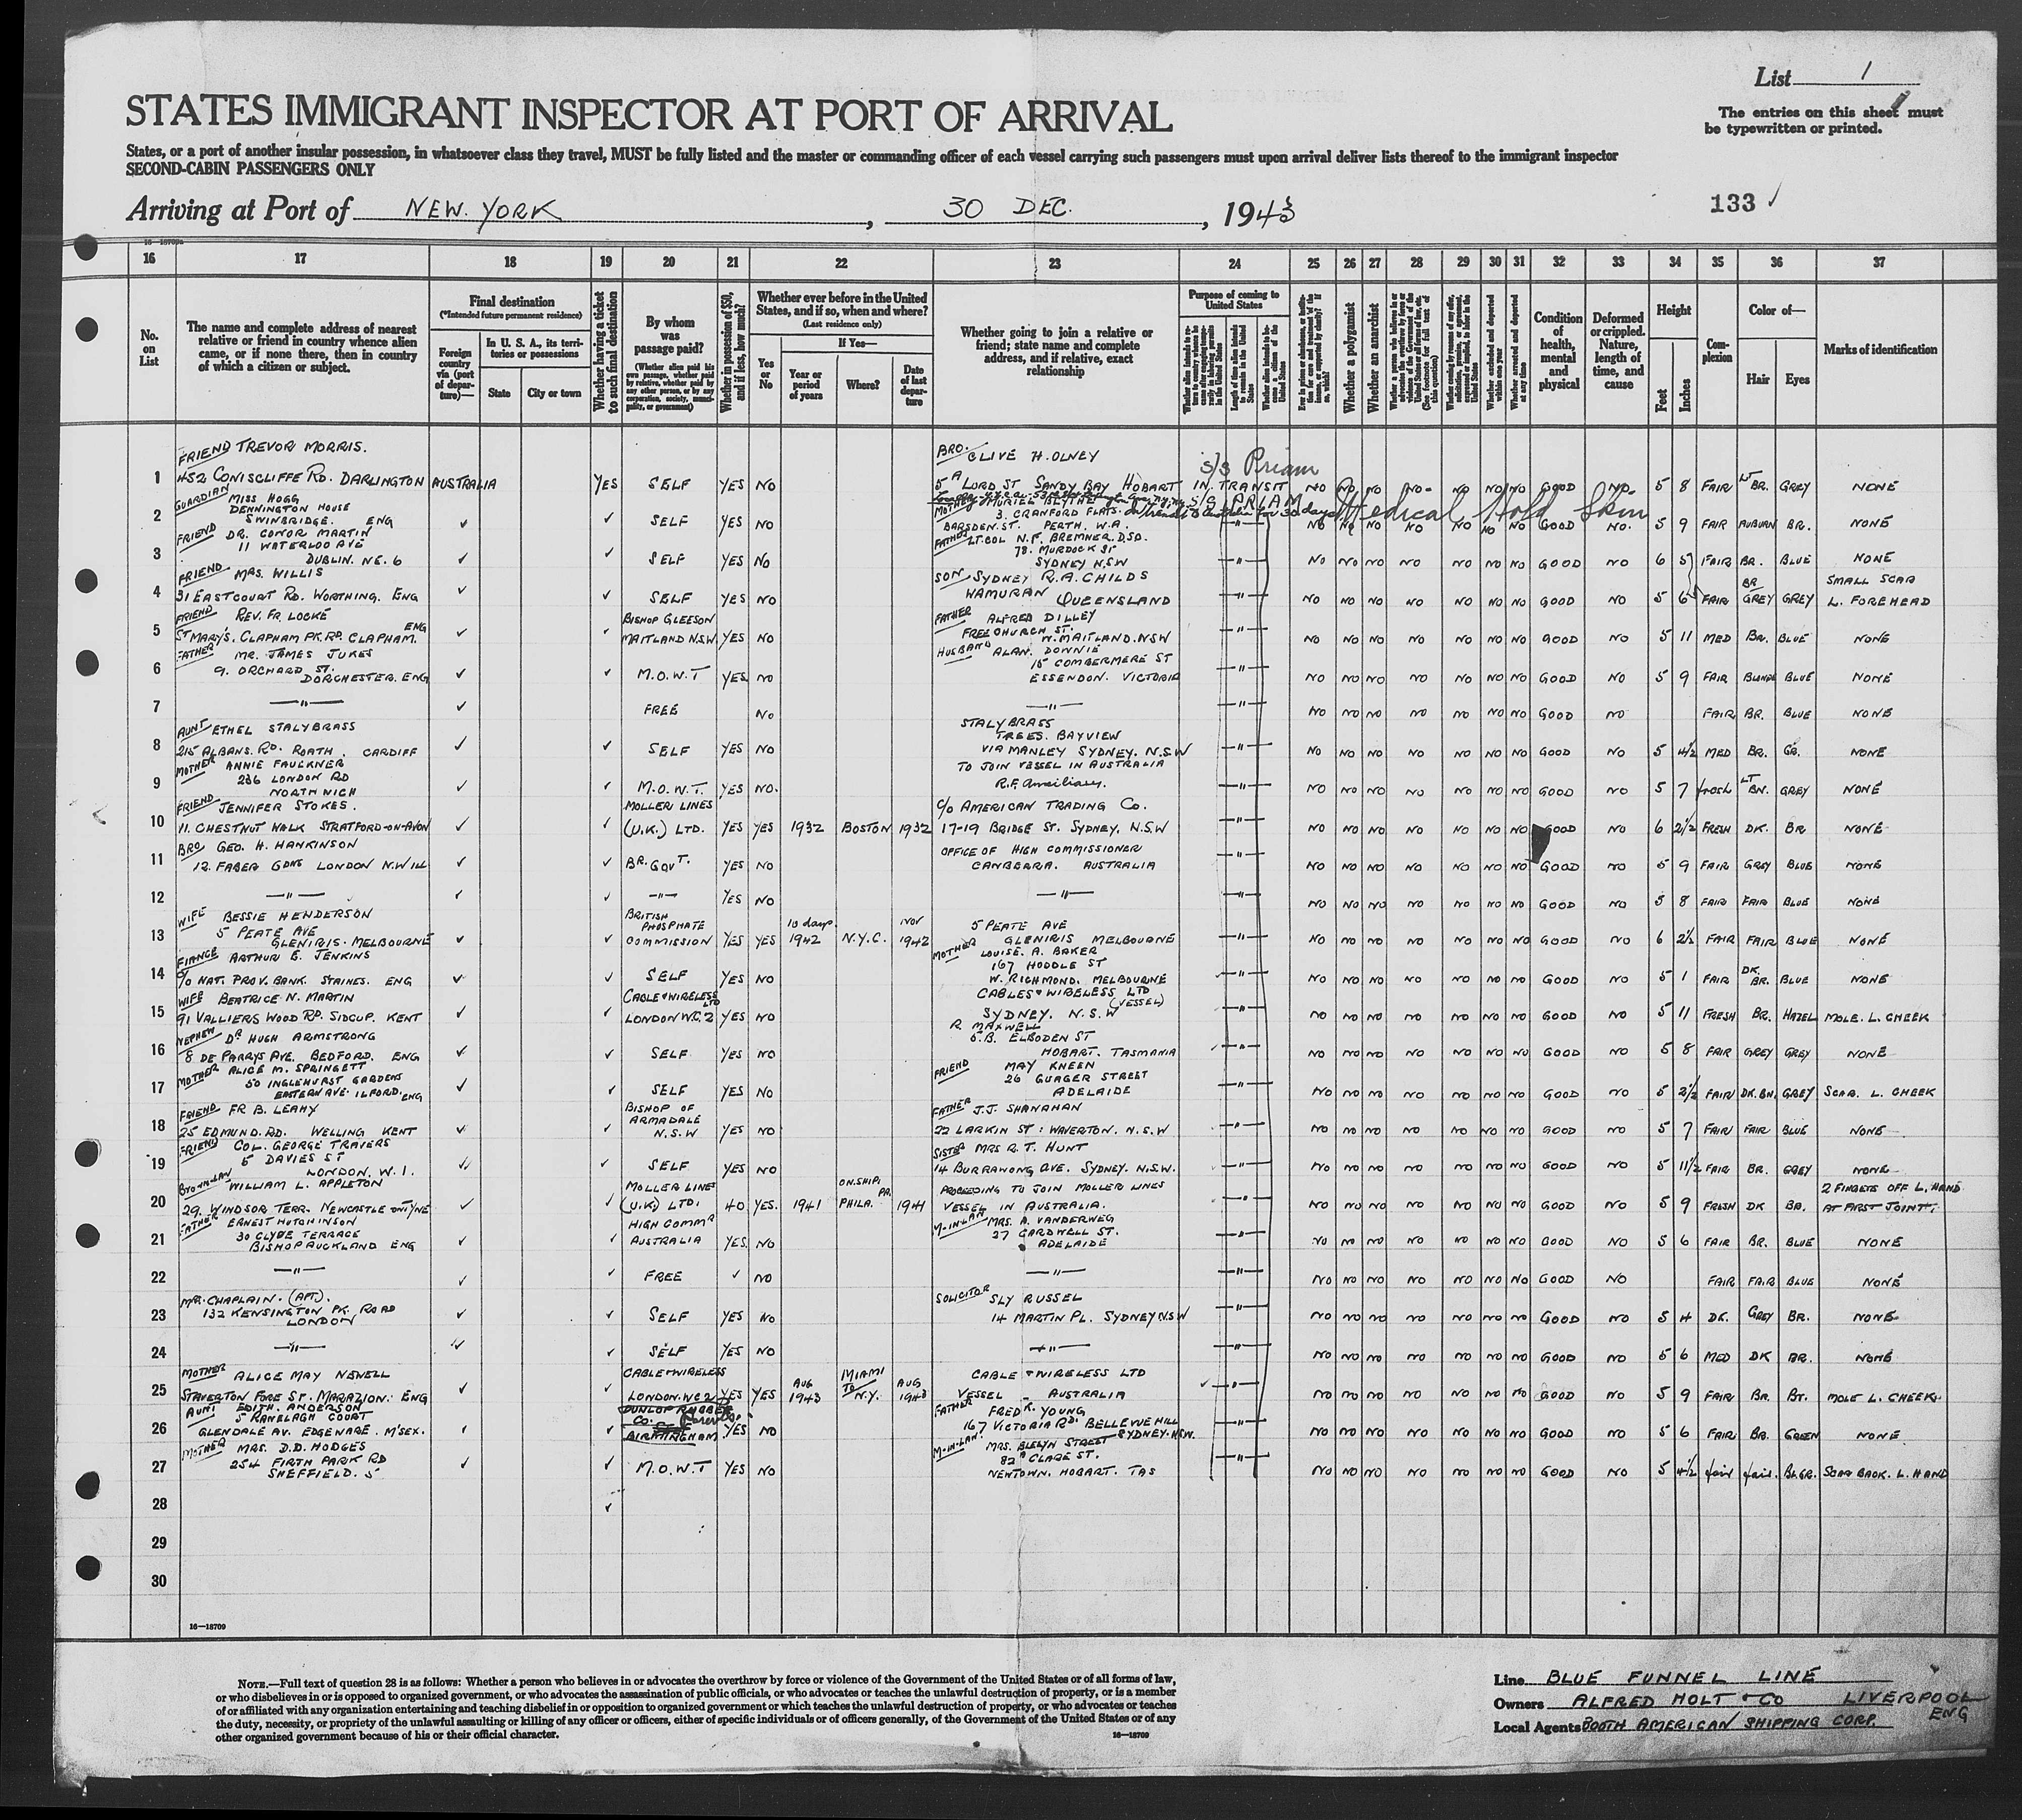 List 1
The entries on this sheet must
be typewritten or printed.
STATES IMMIGRANT INSPECTOR AT PORT OF ARRIVAL
States, or a port of another insular possession, in whatsoever class they travel, MUST be fully listed and the master or commanding officer of each vessel carrying such passengers must upon arrival deliver lists thereof to the immigrant inspector
SECOND-CABIN PASSENGERS ONLY
Arriving at Port of NEW YORK, 30 DEC., 1943
133 ✓
16—18709a
16 17 18 19 20 21 22 23 24 25 26 27 28 29 30 31 32 33 34 35 36 37
No. on List
The name and complete address of nearest relative or friend in country whence alien came, or if none there, then in country of which a citizen or subject.
Final destination
(*Intended future permanent residence)
Foreign country via (port of departure)—
In U. S. A., its territories or possessions
State
City or town
Whether having a ticket to such final destination
By whom was passage paid?
(Whether alien paid his own passage, whether paid by relative, whether paid by any other person, or by any corporation, society, municipality, or government)
Whether in possession of $50, and if less, how much?
Whether ever before in the United States, and if so, when and where?
(Last residence only)
Yes or No
If Yes—
Year or period of years
Where?
Date of last departure
Whether going to join a relative or friend; state name and complete address, and if relative, exact relationship
Purpose of coming to United States
Length of time alien intends to remain in the United States
Whether alien intends to become a citizen of the United States
Whether a polygamist
Whether an anarchist
Whether excluded and deported within one year
Whether arrested and deported at any time
Condition of health, mental and physical
Deformed or crippled. Nature, length of time, and cause
Height
Feet
Inches
Complexion
Color of—
Hair
Eyes
Marks of identification
FRIEND TREVOR MORRIS.
BRO. CLIVE H. OLNEY
S/S Priam
1 452 CONISCLIFFE RD. DARLINGTON AUSTRALIA YES SELF YES NO 5A LORD ST SANDY BAY HOBART IN TRANSIT NO NO NO NO NO NO NO GOOD NO 5 8 FAIR LT BR. GREY NONE
GUARDIAN MISS HOGG
DENNINGTON HOUSE
MOTHER MURIEL
S/S PRIAM
Medical Hold Skin
2 SWINBRIDGE. ENG ✓ ✓ SELF YES NO 3. CRANFORD FLATS.
BARSDEN. ST. PERTH. W.A. —"— NO NO NO NO NO NO NO GOOD NO. 5 9 FAIR AUBURN BR. NONE
FRIEND DR. CONOR MARTIN
11 WATERLOO AVE
FATHER LT. COL N.F. BREMNER. D.S.O.
78. MURDOCK ST
3 DUBLIN. NE. 6 ✓ ✓ SELF YES NO SYDNEY N.S.W —"— NO NO NO NO NO NO NO GOOD NO 6 5 FAIR BR. BLUE NONE
FRIEND MRS. WILLIS
SON SYDNEY R.A. CHILDS
4 31 EASTCOURT RD. WORTHING. ENG ✓ ✓ SELF YES NO WAMURAN QUEENSLAND —"— NO NO NO NO NO NO NO GOOD NO 5 6 FAIR BR GREY GREY SMALL SCAR L. FOREHEAD
FRIEND REV. FR. LOCKE
BISHOP GLEESON
FATHER ALFRED DILLEY
FREE CHURCH ST.
5 ST MARY'S. CLAPHAM PK. RD. CLAPHAM. ENG ✓ ✓ MAITLAND N.S.W. YES NO W. MAITLAND. NSW —"— NO NO NO NO NO NO NO GOOD NO 5 11 MED BR. BLUE NONE
FATHER MR. JAMES JUKES
HUSBAND ALAN. DOWNIE
9. ORCHARD ST.
15 COMBERMERE ST
6 DORCHESTER. ENG ✓ ✓ M.O.W.T YES NO ESSENDON. VICTORIA —"— NO NO NO NO NO NO NO GOOD NO 5 9 FAIR BLONDE BLUE NONE
7 —"— ✓ FREE NO —"— —"— NO NO NO NO NO NO NO GOOD NO FAIR BR. BLUE NONE
AUNT ETHEL STALYBRASS
STALYBRASS
TREES. BAYVIEW
8 215 ALBANS. RD. ROATH. CARDIFF ✓ ✓ SELF YES NO VIA MANLEY SYDNEY. N.S.W —"— NO NO NO NO NO NO NO GOOD NO 5 4½ MED BR. NONE
MOTHER ANNIE FAULKNER
236 LONDON RD
TO JOIN VESSEL IN AUSTRALIA
9 NORTHWICH ✓ ✓ M.O.W.T. YES NO. R.F. Auxiliary. —"— NO NO NO NO NO NO NO GOOD NO 5 7 fresh LT BN. GREY NONE
FRIEND JENNIFER STOKES.
MOLLER LINES
C/O AMERICAN TRADING Co.
10 11. CHESTNUT WALK STRATFORD-ON-AVON ✓ ✓ (U.K.) LTD. YES YES 1932 BOSTON 1932 17-19 BRIDGE ST. SYDNEY. N.S.W —"— NO NO NO NO NO NO NO GOOD NO 6 2½ FRESH DK. BR NONE
BRO GEO. H. HANKINSON
OFFICE OF HIGH COMMISSIONER
11 12. FABER GDNS LONDON N.W. ✓ ✓ BR. GOVT. YES NO CANBERRA. AUSTRALIA —"— NO NO NO NO NO NO NO GOOD NO 5 9 FAIR GREY BLUE NONE
12 —"— ✓ ✓ —"— YES NO —"— —"— NO NO NO NO NO NO NO GOOD NO 5 8 FAIR FAIR BLUE NONE
WIFE BESSIE HENDERSON
BRITISH PHOSPHATE
10 days. NOV
5 PEATE AVE
5 PEATE AVE
13 GLENIRIS. MELBOURNE ✓ ✓ COMMISSION YES YES 1942 N.Y.C. 1942 GLENIRIS MELBOURNE —"— NO NO NO NO NO NO NO GOOD NO 6 2½ FAIR FAIR BLUE NONE
FIANCE ARTHUR E. JENKINS
MOTHER LOUISE. A. BAKER
167 HODDLE ST
14 C/O NAT. PROV. BANK. STAINES. ENG ✓ ✓ SELF YES NO W. RICHMOND. MELBOURNE —"— NO NO NO NO NO NO NO GOOD NO 5 1 FAIR DK BR. BLUE NONE
WIFE BEATRICE N. MARTIN
CABLE & WIRELESS LTD
CABLES & WIRELESS LTD
(VESSEL)
15 91 VALLIERS WOOD RD. SIDCUP. KENT ✓ ✓ LONDON W.C.2 YES NO SYDNEY. N.S.W —"— NO NO NO NO NO NO NO GOOD NO 5 11 FRESH BR. HAZEL MOLE. L. CHEEK
NEPHEW DR HUGH ARMSTRONG
R MAXWELL
5.B. ELBODEN ST
16 8 DE PARRYS AVE. BEDFORD. ENG ✓ ✓ SELF YES NO HOBART. TASMANIA —"— NO NO NO NO NO NO NO GOOD NO 5 8 FAIR GREY GREY NONE
MOTHER ALICE M. SPRINGETT
50 INGLEHURST GARDENS
FRIEND MAY KNEEN
26 GUAGER STREET
17 EASTERN AVE. ILFORD. ENG ✓ ✓ SELF YES NO ADELAIDE —"— NO NO NO NO NO NO NO GOOD NO 5 2½ FAIR DK. BN. GREY SCAR. L. CHEEK
FRIEND FR B. LEAHY
BISHOP OF ARMADALE
FATHER J.J. SHANAHAN
18 25 EDMUND. RD. WELLING KENT ✓ ✓ N.S.W YES NO 22 LARKIN ST: WAVERTON. N.S.W —"— NO NO NO NO NO NO NO GOOD NO 5 7 FAIR FAIR BLUE NONE
FRIEND COL. GEORGE TRAVERS
5 DAVIES ST
SISTER MRS R. T. HUNT
19 LONDON, W.1. ✓ ✓ SELF YES NO 14 BURRAWONG AVE. SYDNEY. N.S.W. —"— NO NO NO NO NO NO NO GOOD NO 5 11½ FAIR BR. GREY NONE
BRO-IN-LAW WILLIAM L. APPLETON
MOLLER LINES
ON. SHIP. PA.
PROCEEDING TO JOIN MOLLER LINES
2 FINGERS OFF L. HAND
20 29. WINDSOR TERR. NEWCASTLE ON TYNE ✓ ✓ (U.K.) LTD. 40 YES. 1941 PHILA. 1941 VESSEL IN AUSTRALIA. —"— NO NO NO NO NO NO NO GOOD NO 5 9 FRESH DK BR. AT FIRST JOINT.
FATHER ERNEST HUTCHINSON
30 CLYDE TERRACE
HIGH COMMR
M-IN-LAW MRS. A. VANDERWEG
27 CARDWELL ST.
21 BISHOP AUCKLAND ENG ✓ ✓ AUSTRALIA YES. NO ADELAIDE —"— NO NO NO NO NO NO NO GOOD NO 5 6 FAIR BR. BLUE NONE
22 —"— ✓ ✓ FREE ✓ NO —"— —"— NO NO NO NO NO NO NO GOOD NO FAIR FAIR BLUE NONE
MR. CHAPLAIN. (APT).
SOLICITOR SLY RUSSEL
23 132 KENSINGTON PK. ROAD LONDON ✓ ✓ SELF YES NO 14 MARTIN PL. SYDNEY N.S.W —"— NO NO NO NO NO NO NO GOOD NO 5 4 DK. GREY BR. NONE
24 —"— ✓ ✓ SELF YES NO —"— —"— NO NO NO NO NO NO NO GOOD NO 5 6 MED DK BR. NONE
MOTHER ALICE MAY NEWELL
CABLE & WIRELESS
AUG MIAMI TO AUG
CABLE & WIRELESS LTD
25 STAVERTON FORE ST. MARAZION. ENG ✓ ✓ LONDON. WC2 YES YES 1943 N.Y. 1943 VESSEL - AUSTRALIA —"— NO NO NO NO NO NO NO GOOD NO 5 9 FAIR BR. MOLE L. CHEEK.
AUNT EDITH. ANDERSON
5 RANELAGH COURT
DUNLOP RUBBER CO.
FATHER FREDK. YOUNG
167 VICTORIA RD. BELLEVUE HILL
26 GLENDALE AV. EDGEWARE. M'SEX. ✓ ✓ BIRMINGHAM YES NO SYDNEY. NSW. —"— NO NO NO NO NO NO NO GOOD NO 5 6 FAIR BR. GREEN NONE
MOTHER MRS. D.D. HODGES
254 FIRTH PARK RD
M-IN-LAW. MRS. STREET
82A CLARE ST.
27 SHEFFIELD. 5 ✓ ✓ M.O.W.T YES NO NEWTOWN. HOBART. TAS —"— NO NO NO NO NO NO NO GOOD NO 5 4½ fair fair. BLGR. SCAR BACK. L. HAND
28 ✓
29
30
16—18709
NOTE.—Full text of question 28 is as follows: Whether a person who believes in or advocates the overthrow by force or violence of the Government of the United States or of all forms of law,
or who disbelieves in or is opposed to organized government, or who advocates the assassination of public officials, or who advocates or teaches the unlawful destruction of property, or is a member
of or affiliated with any organization entertaining and teaching disbelief in or opposition to organized government or which teaches the unlawful destruction of property, or who advocates or teaches
the duty, necessity, or propriety of the unlawful assaulting or killing of any officer or officers, either of specific individuals or of officers generally, of the Government of the United States or of any
other organized government because of his or their official character.
16—18709
Line BLUE FUNNEL LINE
Owners ALFRED HOLT & CO LIVERPOOL ENG
Local Agents BOOTH AMERICAN SHIPPING CORP.